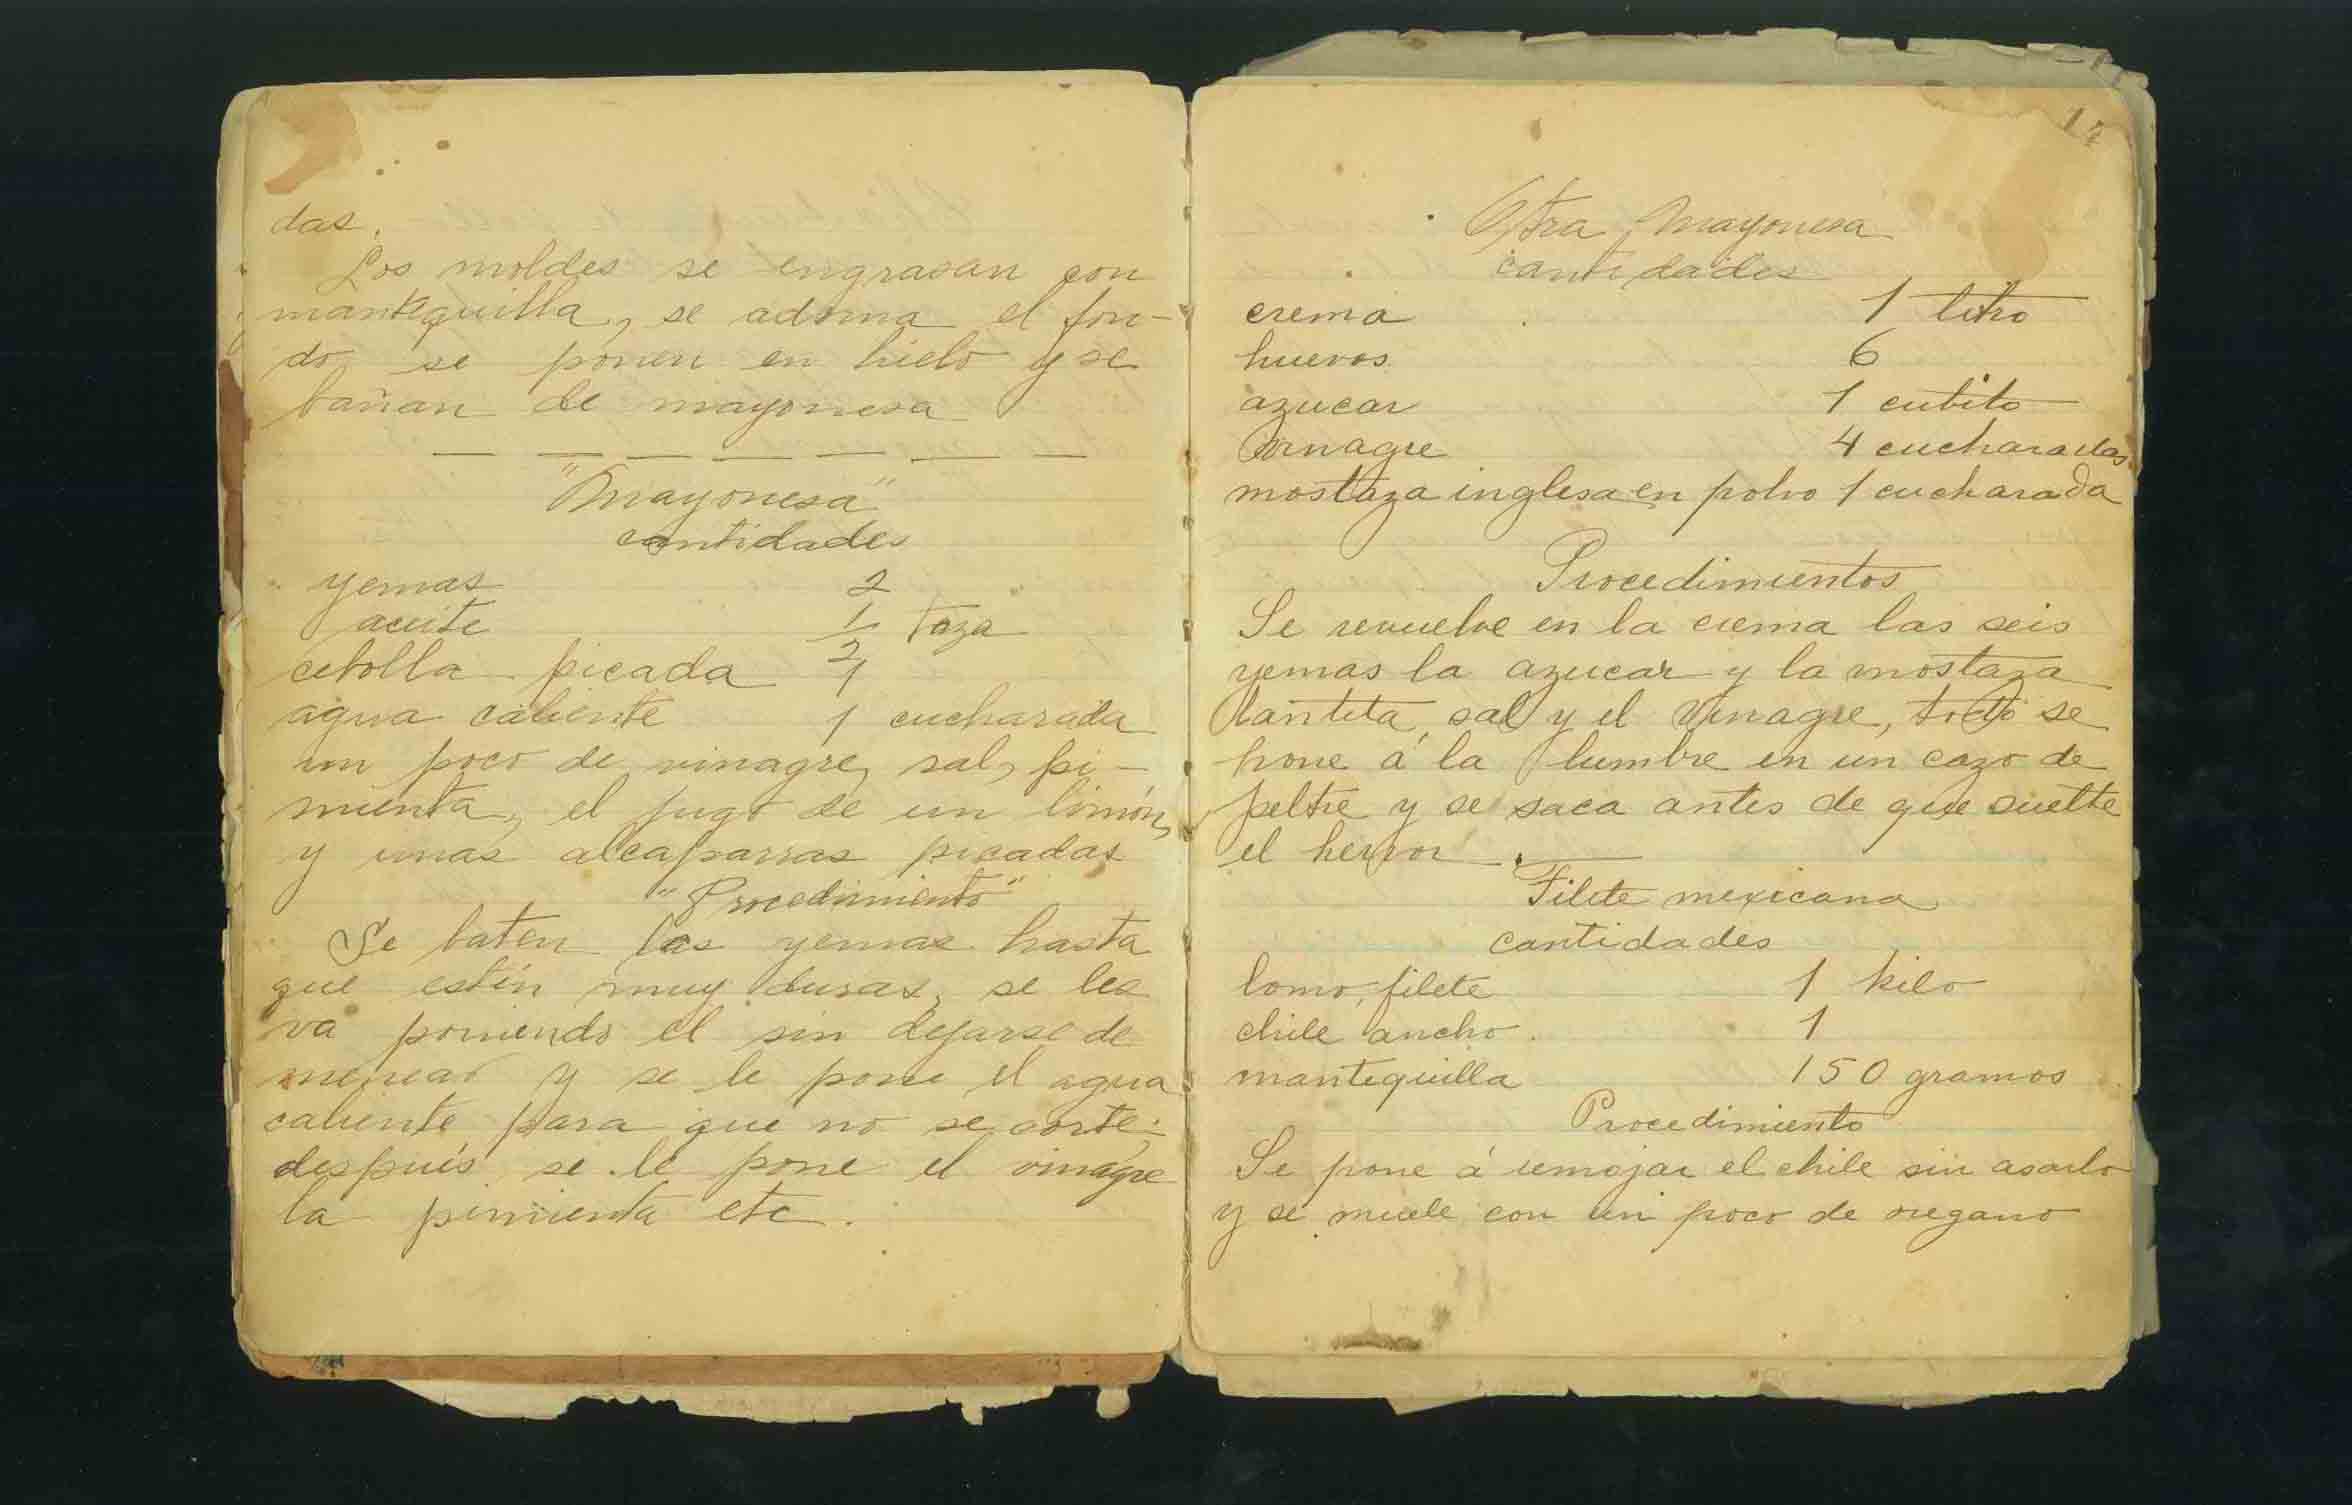 das.
Los moldes se engrasan con
mantequilla, se adorna el fon-
do, se ponen en hielo y se
bañan de mayonesa
"Mayonesa"
cantidades
yemas 2
aceite 1/2 taza
cebolla picada 1
agua caliente 1 cucharada
un poco de vinagre, sal, pi-
mienta, el jugo de un limón,
y unas alcaparras picadas
"Procedimiento"
Se baten las yemas hasta
que estén muy duras, se les
va poniendo el sin dejarse de
menear y se le pone el agua
caliente para que no se corte;
después se le pone el vinagre
la pimienta etc.
17
Otra Mayonesa
cantidades
crema 1 litro
huevos 6
azucar 1 cubito
vinagre 4 cucharadas
mostaza inglesa en polvo 1 cucharada
Procedimientos
Se revuelve en la crema las seis
yemas la azucar y la mostaza
tantita, sal y el vinagre, todo se
pone á la lumbre en un cazo de
peltre y se saca antes de que suelte
el hervor.
Filete mexicana
cantidades
lomo, filete 1 kilo
chile ancho. 1
mantequilla 150 gramos
Procedimiento
Se pone á remojar el chile sin asarlo
y se muele con un poco de oregano